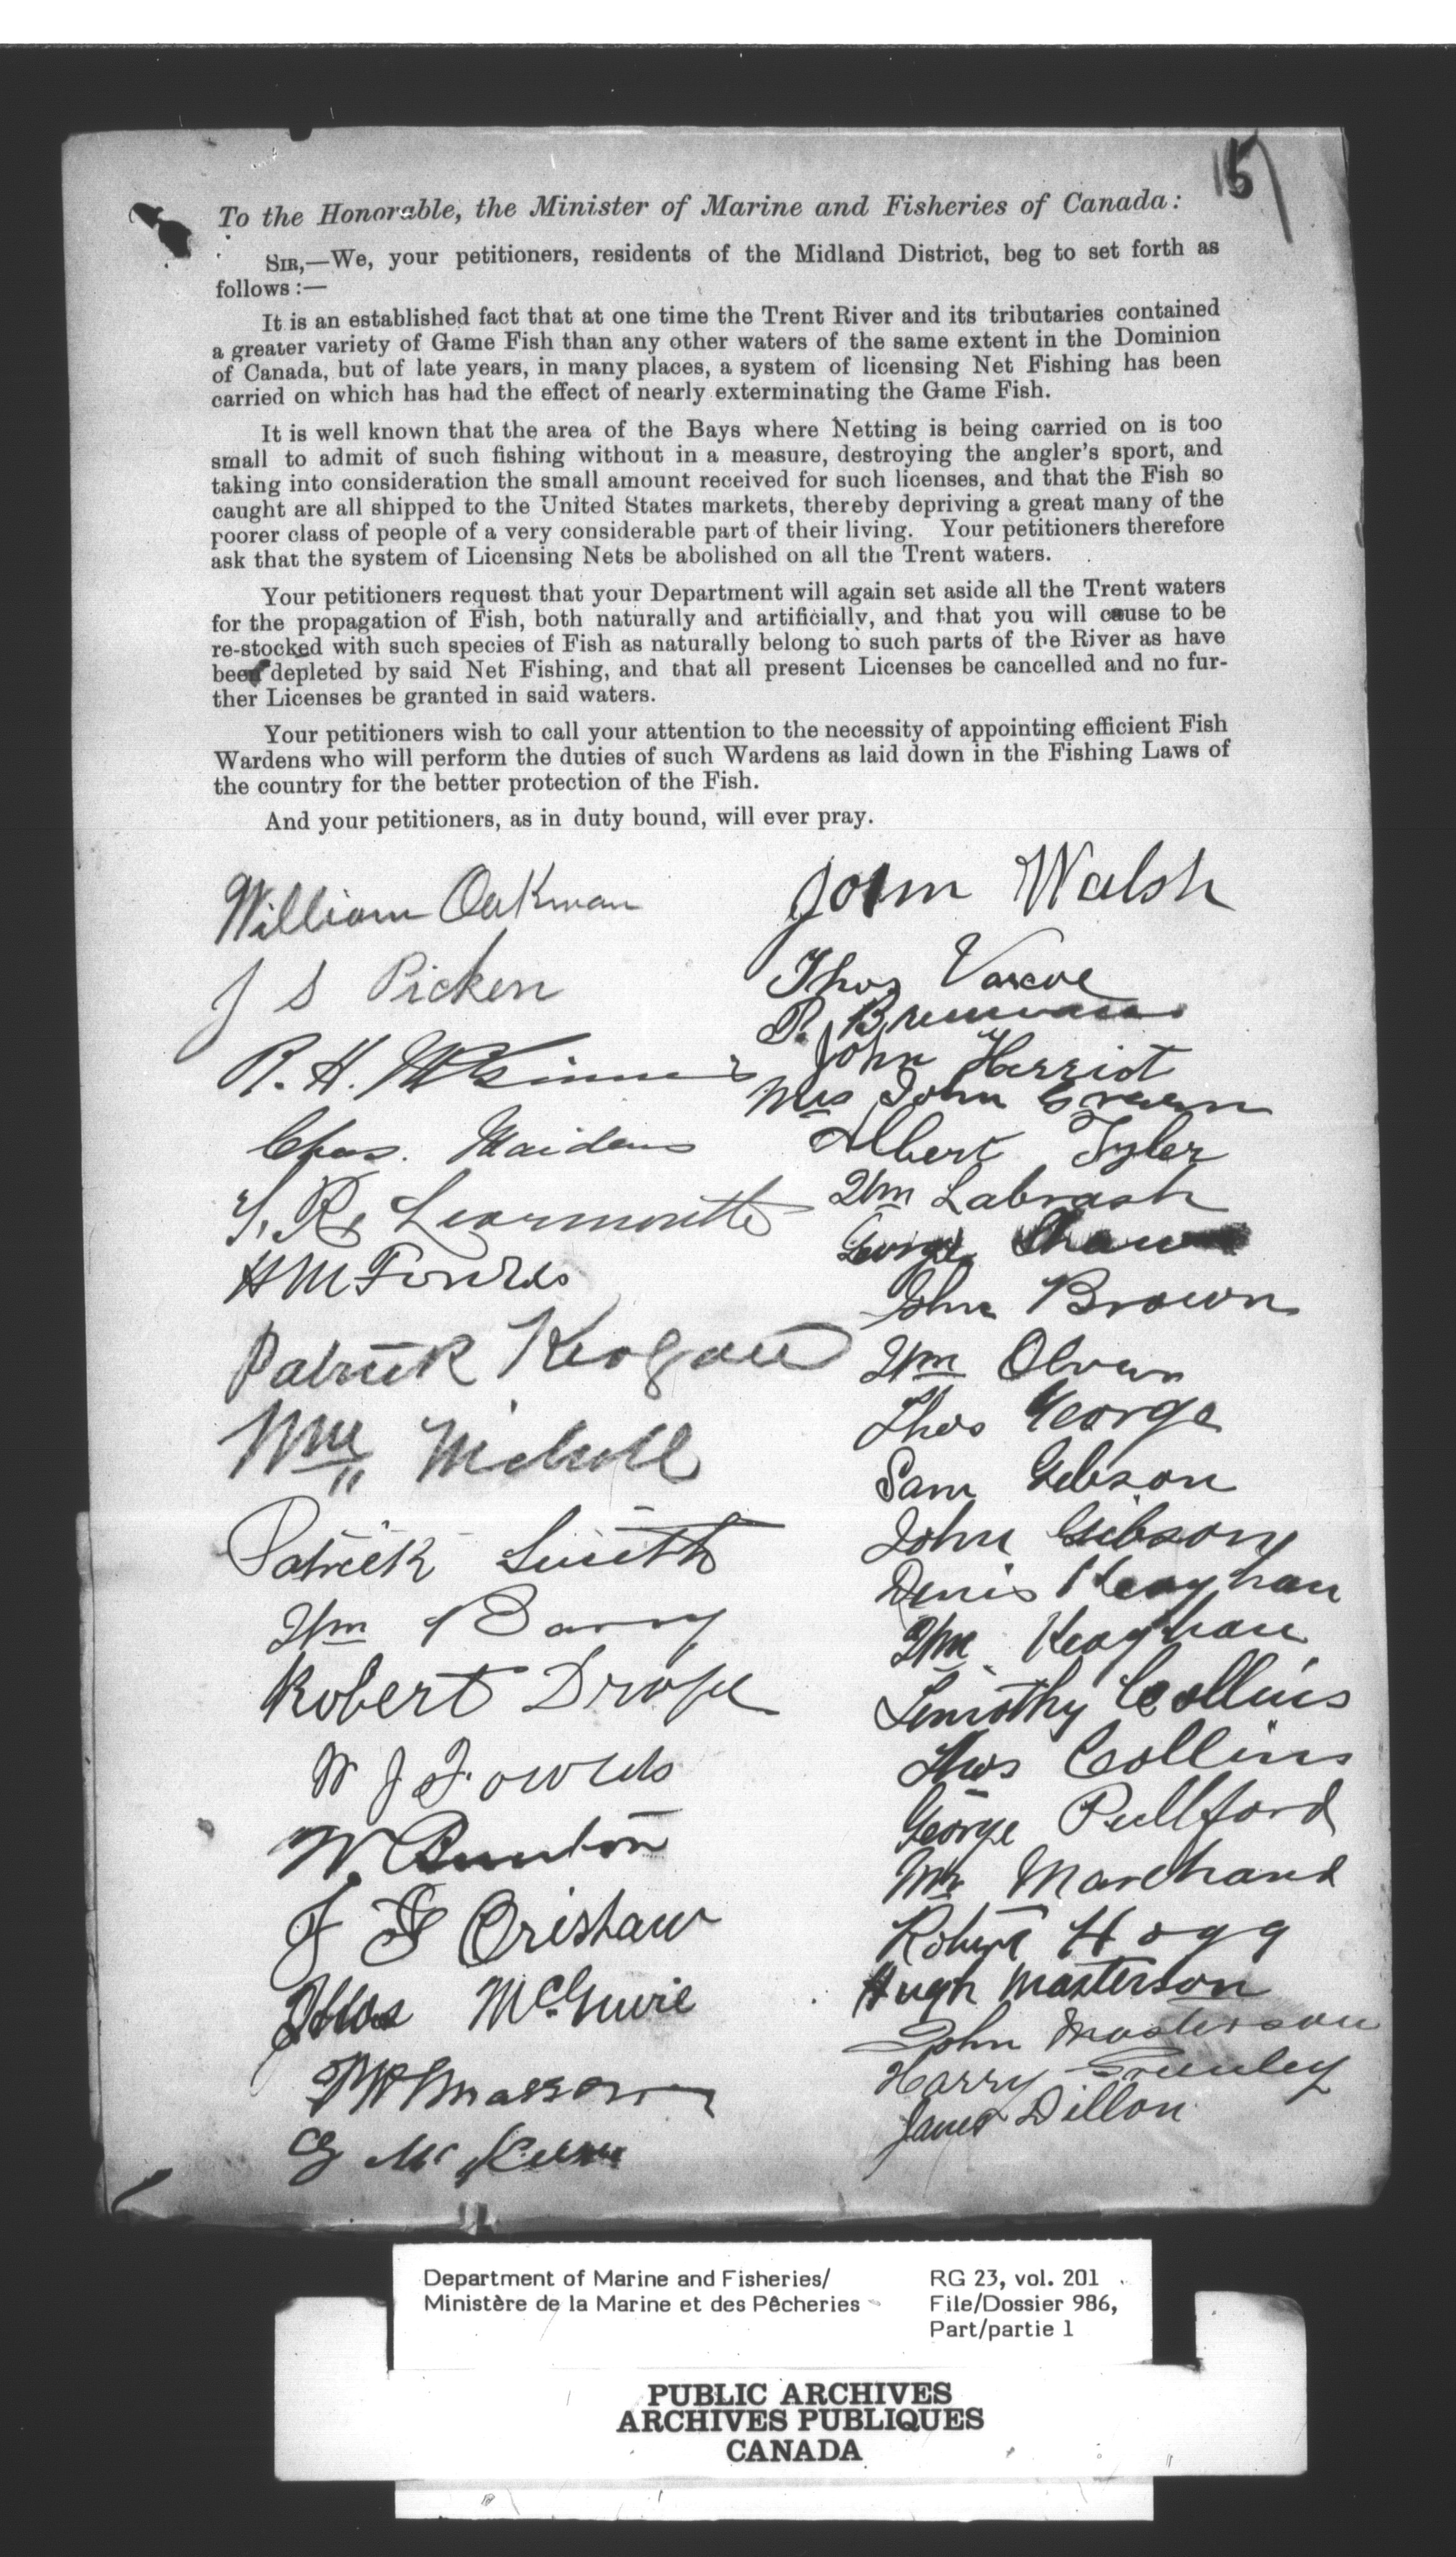 15
To the Honorable, the Minister of Marine and Fisheries of Canada:
SIR,—We, your petitioners, residents of the Midland District, beg to set forth as
follows :—
It is an established fact that at one time the Trent River and its tributaries contained
a greater variety of Game Fish than any other waters of the same extent in the Dominion
of Canada, but of late years, in many places, a system of licensing Net Fishing has been
carried on which has had the effect of nearly exterminating the Game Fish.
It is well known that the area of the Bays where Netting is being carried on is too
small to admit of such fishing without in a measure, destroying the angler's sport, and
taking into consideration the small amount received for such licenses, and that the Fish so
caught are all shipped to the United States markets, thereby depriving a great many of the
poorer class of people of a very considerable part of their living. Your petitioners therefore
ask that the system of Licensing Nets be abolished on all the Trent waters.
Your petitioners request that your Department will again set aside all the Trent waters
for the propagation of Fish, both naturally and artificially, and that you will cause to be
re-stocked with such species of Fish as naturally belong to such parts of the River as have
been depleted by said Net Fishing, and that all present Licenses be cancelled and no fur-
ther Licenses be granted in said waters.
Your petitioners wish to call your attention to the necessity of appointing efficient Fish
Wardens who will perform the duties of such Wardens as laid down in the Fishing Laws of
the country for the better protection of the Fish.
And your petitioners, as in duty bound, will ever pray.
William Oakman
J S Picken
R. H. McKinnis
Chas. Maidens
Learmonth
H M Fowlds
Patrick Keogan
Wm Nicholl
Patrick Smith
Wm Barry
Robert Drope
W J Fowlds
W. Bunton
J G Crishaw
Thos McGuire
Masson
John Walsh
Thos Vascoe
P. Brennan
John Herriot
Mrs John Green
Albert Tyler
Wm Labrash
George Shaw
John Brown
Wm
Thos George
Sam Gibson
John Gibson
Denis Keaghan
Wm Keaghan
Timothy Collins
Thos Collins
George Pullford
Mr Marchand
Robert Hogg
Hugh Masterson
John Masterson
Harry Greenley
James Dillon
Department of Marine and Fisheries/
Ministère de la Marine et des Pêcheries
RG 23, vol. 201
File/Dossier 986,
Part/partie 1
PUBLIC ARCHIVES
ARCHIVES PUBLIQUES
CANADA